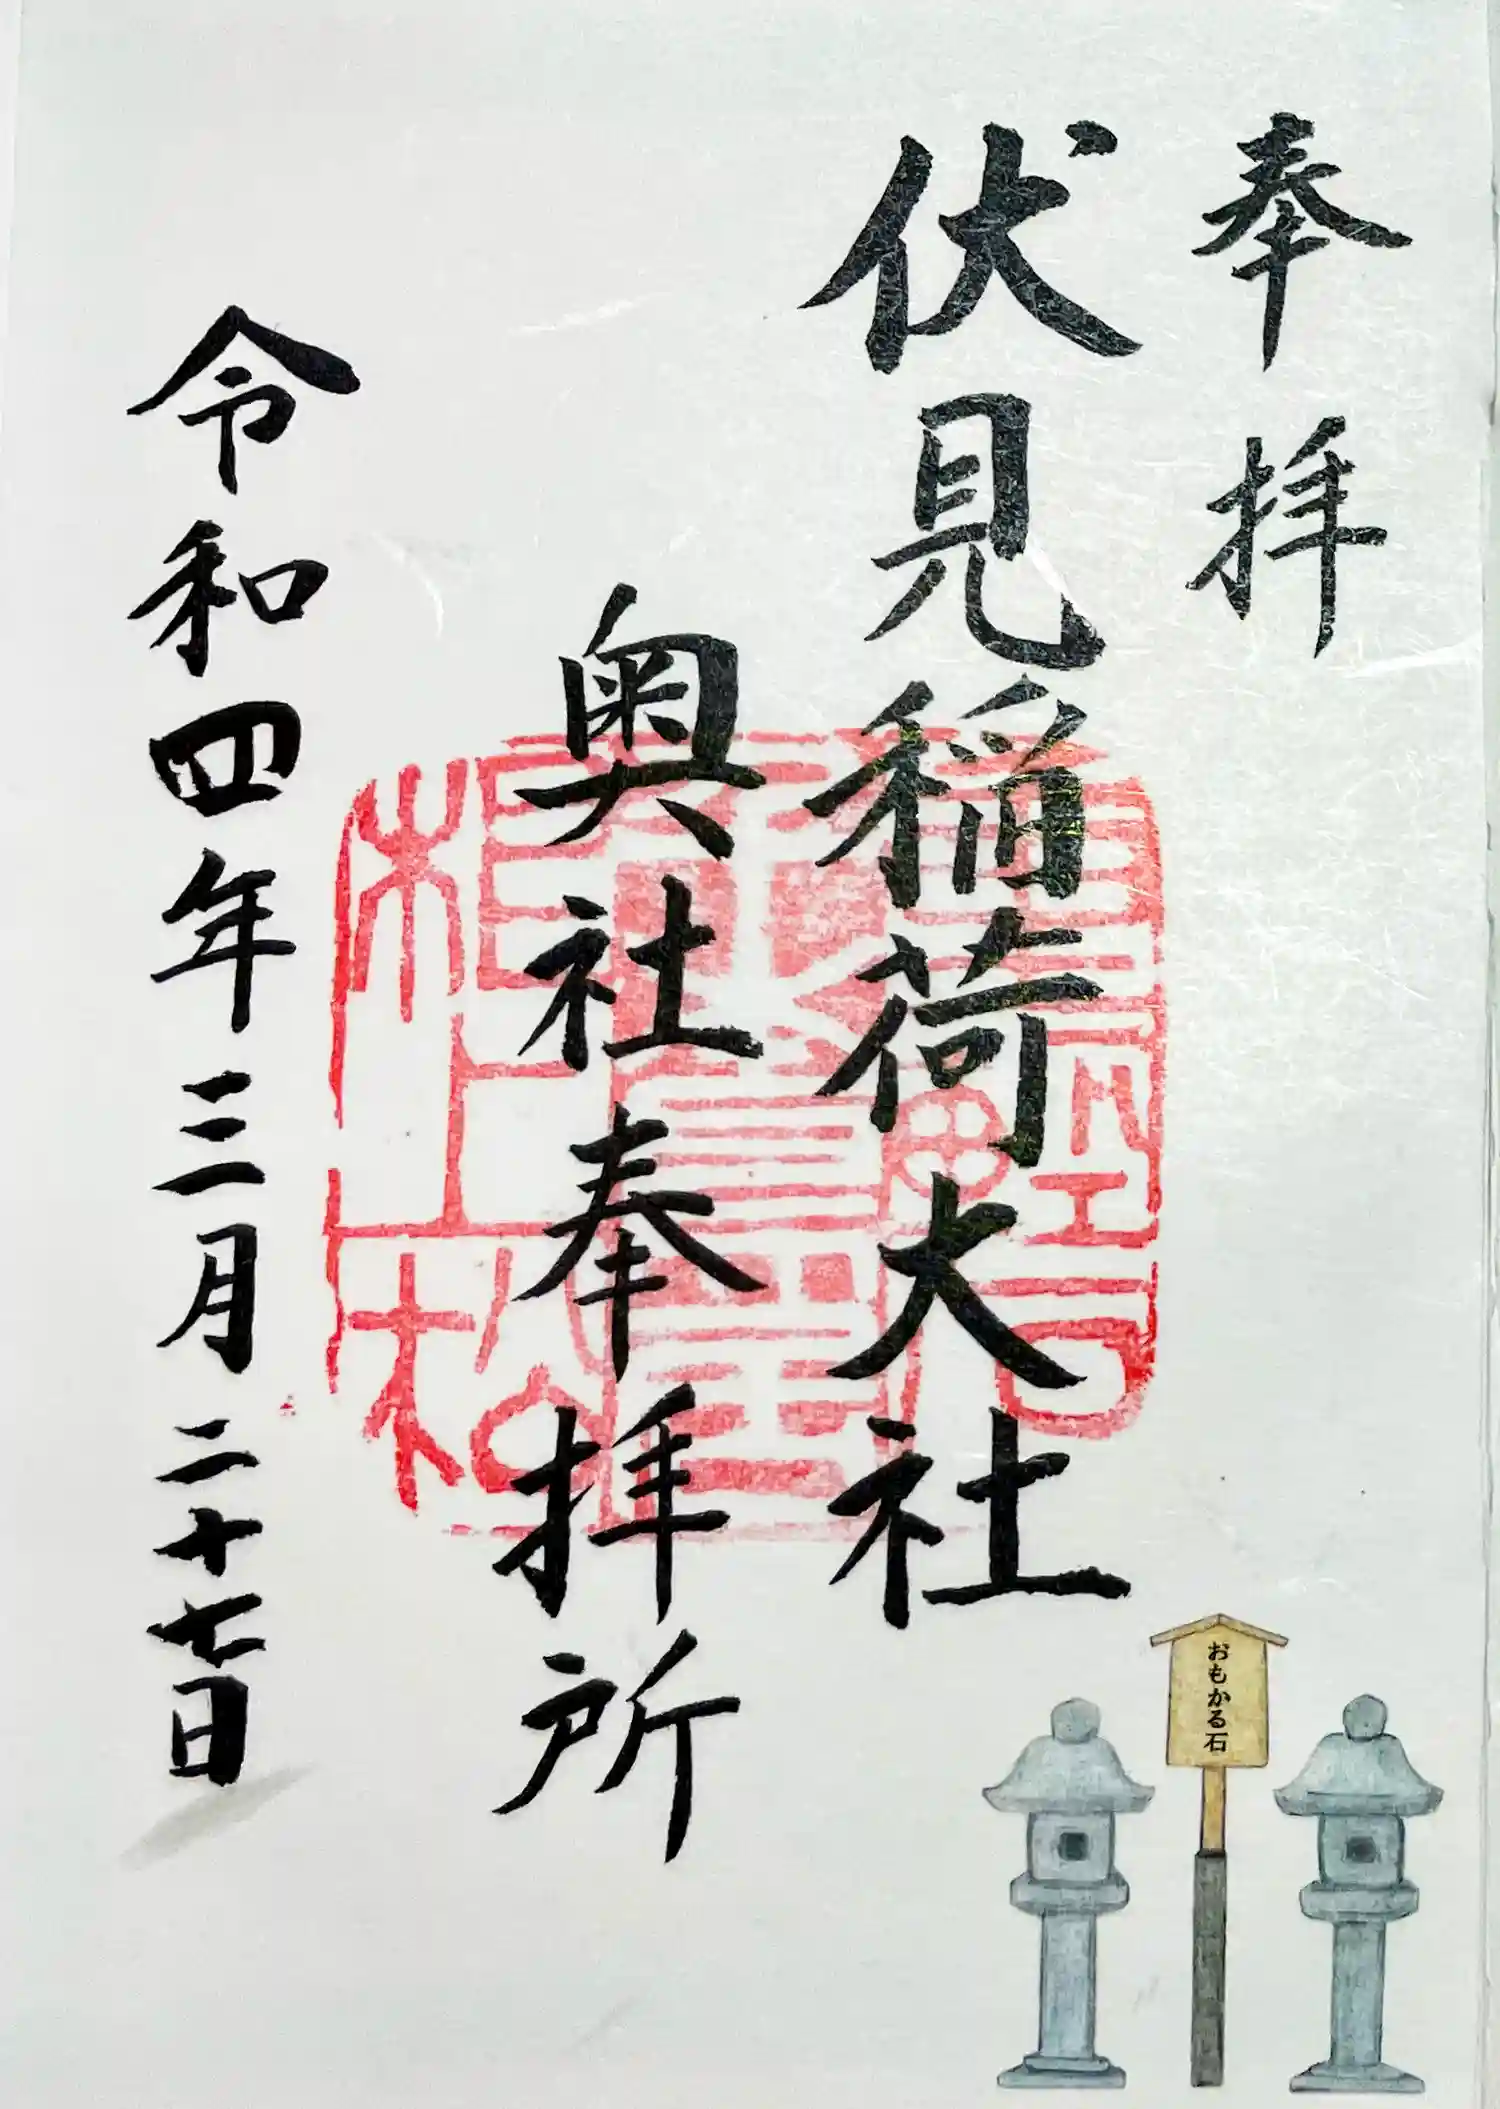 奉拝
伏見稲荷大社
奥社奉拝所
令和四年三月二十七日
おもかる石